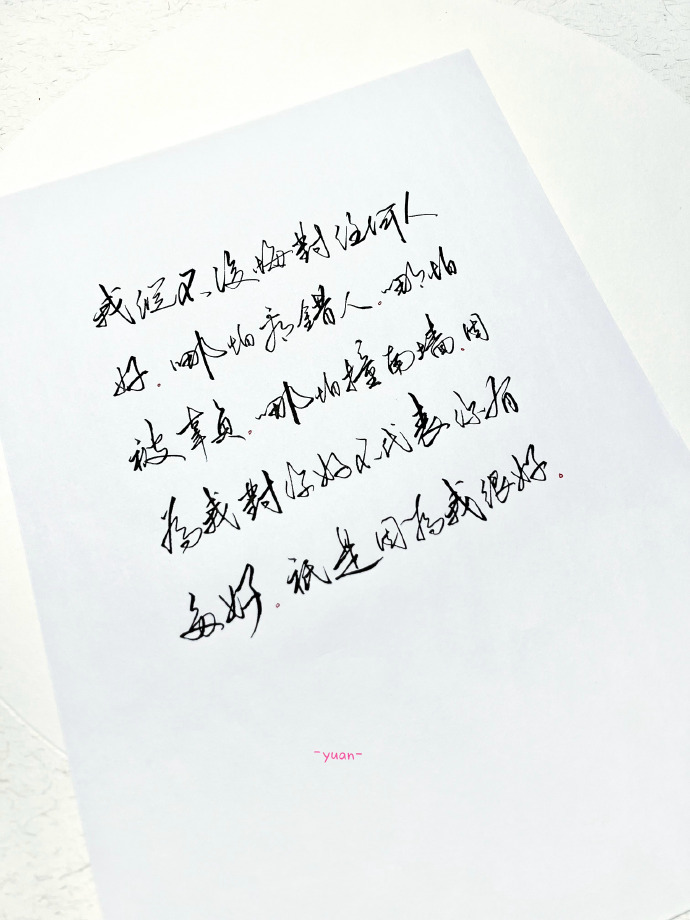 我從不後悔對任何人
好.哪怕看錯人.哪怕
被辜負.哪怕撞南墙.因
為我對你好不代表你有
多好.祇是因為我很好.
-yuan-